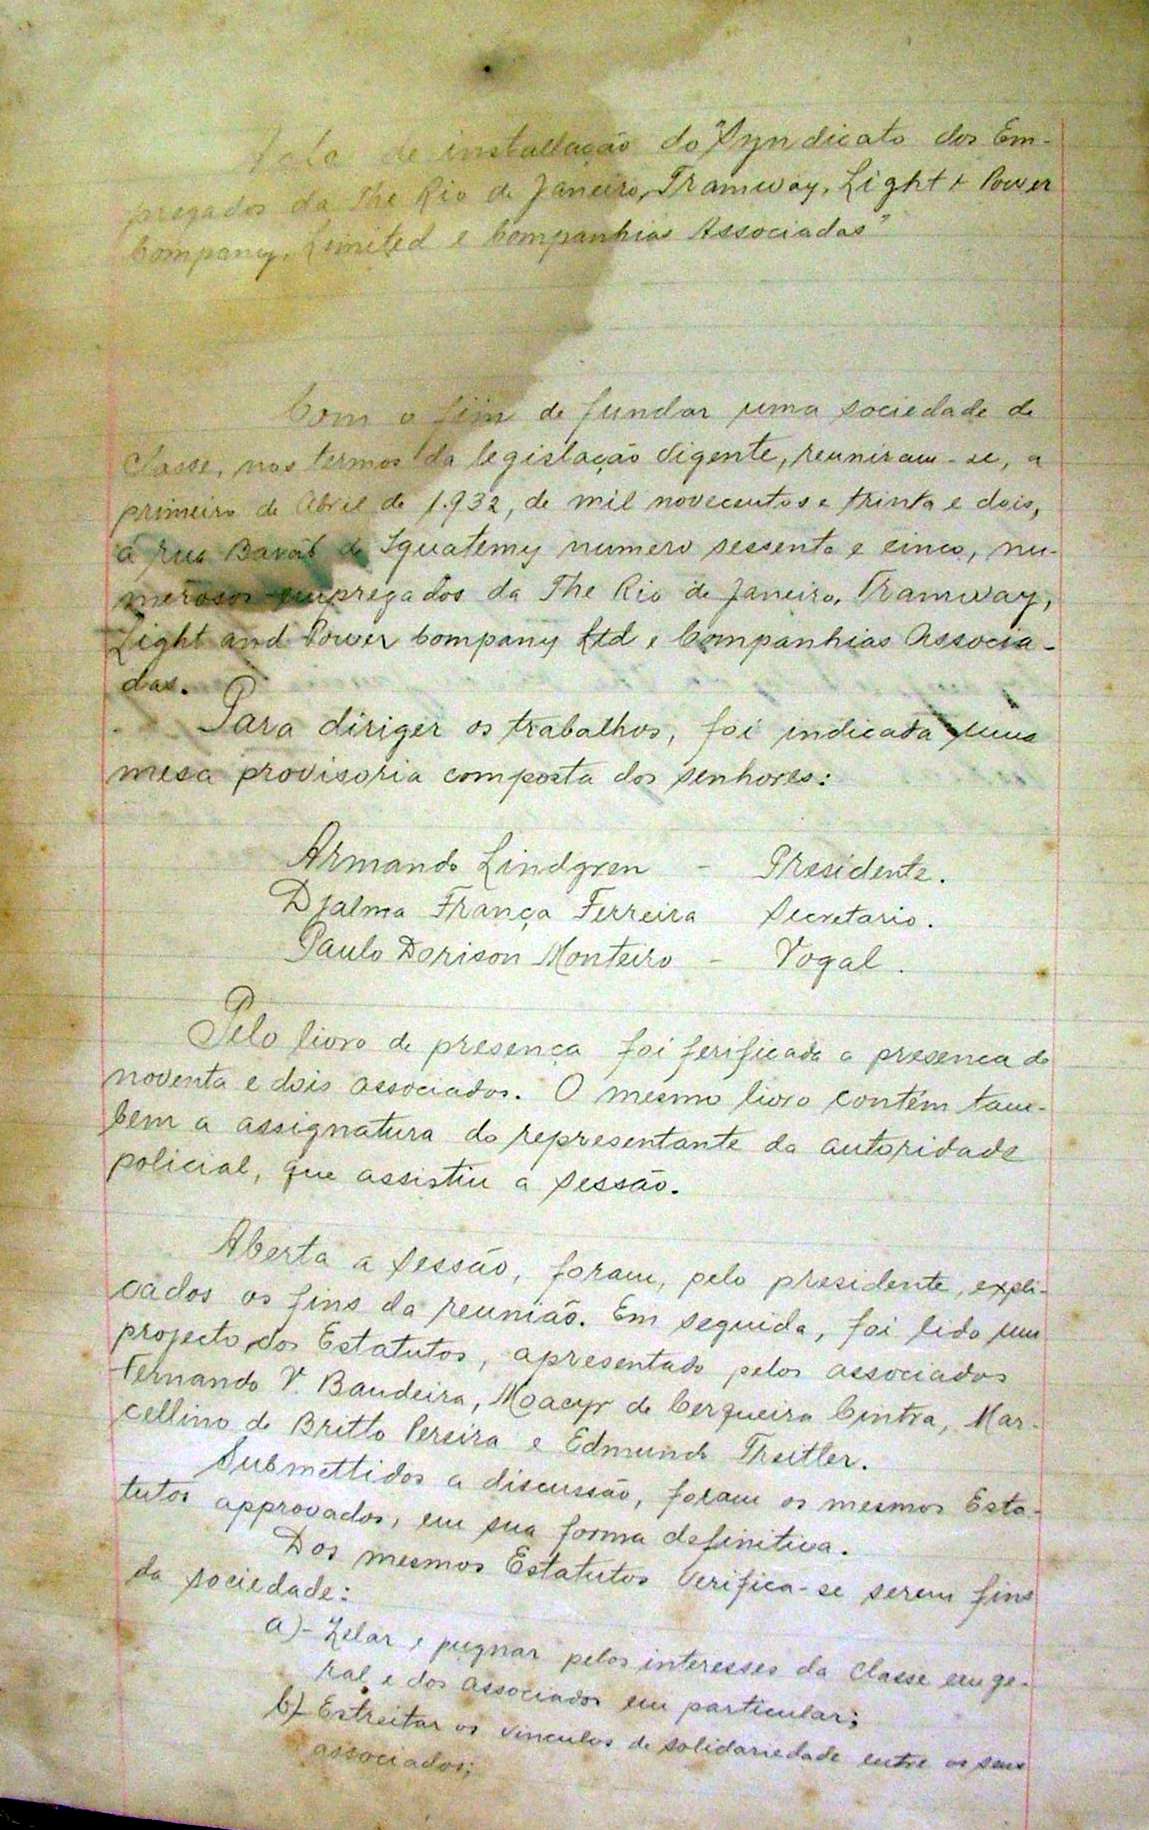 Acta de installação do "Syndicato dos Em-
pregados da The Rio de Janeiro, Tramway, Light & Power
Company, Limited e Companhias Associadas"
Com o fim de fundar uma sociedade de
classe, nos termos da legislação vigente, reuniram-se, a
primeiro de Abril de 1.932, de mil novecentos e trinta e dois,
á rua Barão de Iguatemy numero sessenta e cinco, nu-
merosos empregados da The Rio de Janeiro, Tramway,
Light and Power Company Ltd e Companhias Associa-
das.
Para diriger os trabalhos, foi indicada uma
mesa provisoria composta dos senhores:
Armando Lindgren - Presidente.
Djalma França Ferreira Secretario.
Paulo Dorison Monteiro - Vogal.
Pelo livro de presença foi ferificada a presença de
noventa e dois associados. O mesmo livro contém tam-
bem a assignatura do representante da autoridade
policial, que assistiu a sessão.
Aberta a sessão, foram, pelo presidente, expli-
cados os fins da reunião. Em seguida, foi lido um
projecto dos Estatutos, apresentado pelos associados
Fernando V. Bandeira, Moacyr de Cerqueira Cintra, Mar-
cellino de Britto Pereira e Edmundo Treitler.
Submettidos a discussão, foram os mesmos Esta-
tutos approvados, em sua forma definitiva.
Dos mesmos Estatutos verifica-se serem fins
da sociedade:
a)- Zelar e pugnar pelos interesses da classe em ge-
ral e dos associados em particular;
b)- Estreitar os vinculos de solidariedade entre os seus
associados;